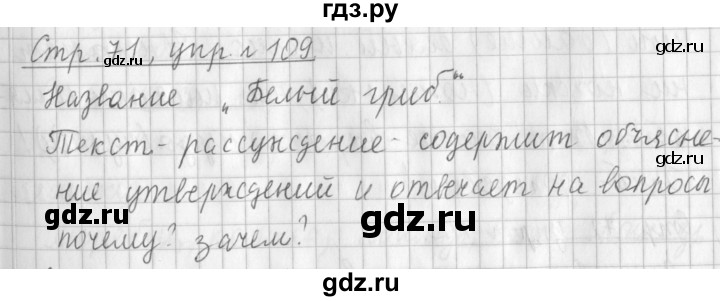 гдз.ру
Стр. 71, упр. № 109
gdz.ru gdz.ru
Название „Белый гриб."
Текст-рассуждение- содержит объясне-
gdz.ru
ние утверждений и отвечает на вопросы
gdz.ru gdz.ru
почему? зачем?
gdz.ru
gdz.ru